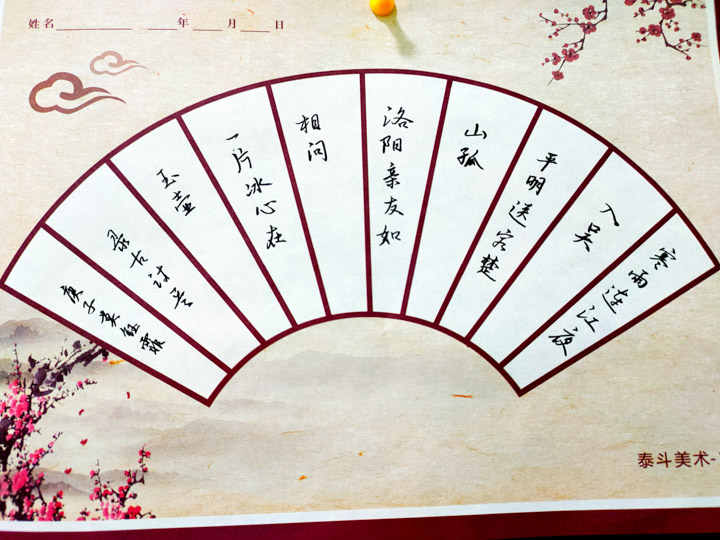 姓名 年 月 日
寒雨连江夜
入吴
平明送客楚
山孤
洛阳亲友如
相问
一片冰心在
玉壶
录古诗一首
庚子 钰霏
泰斗美术